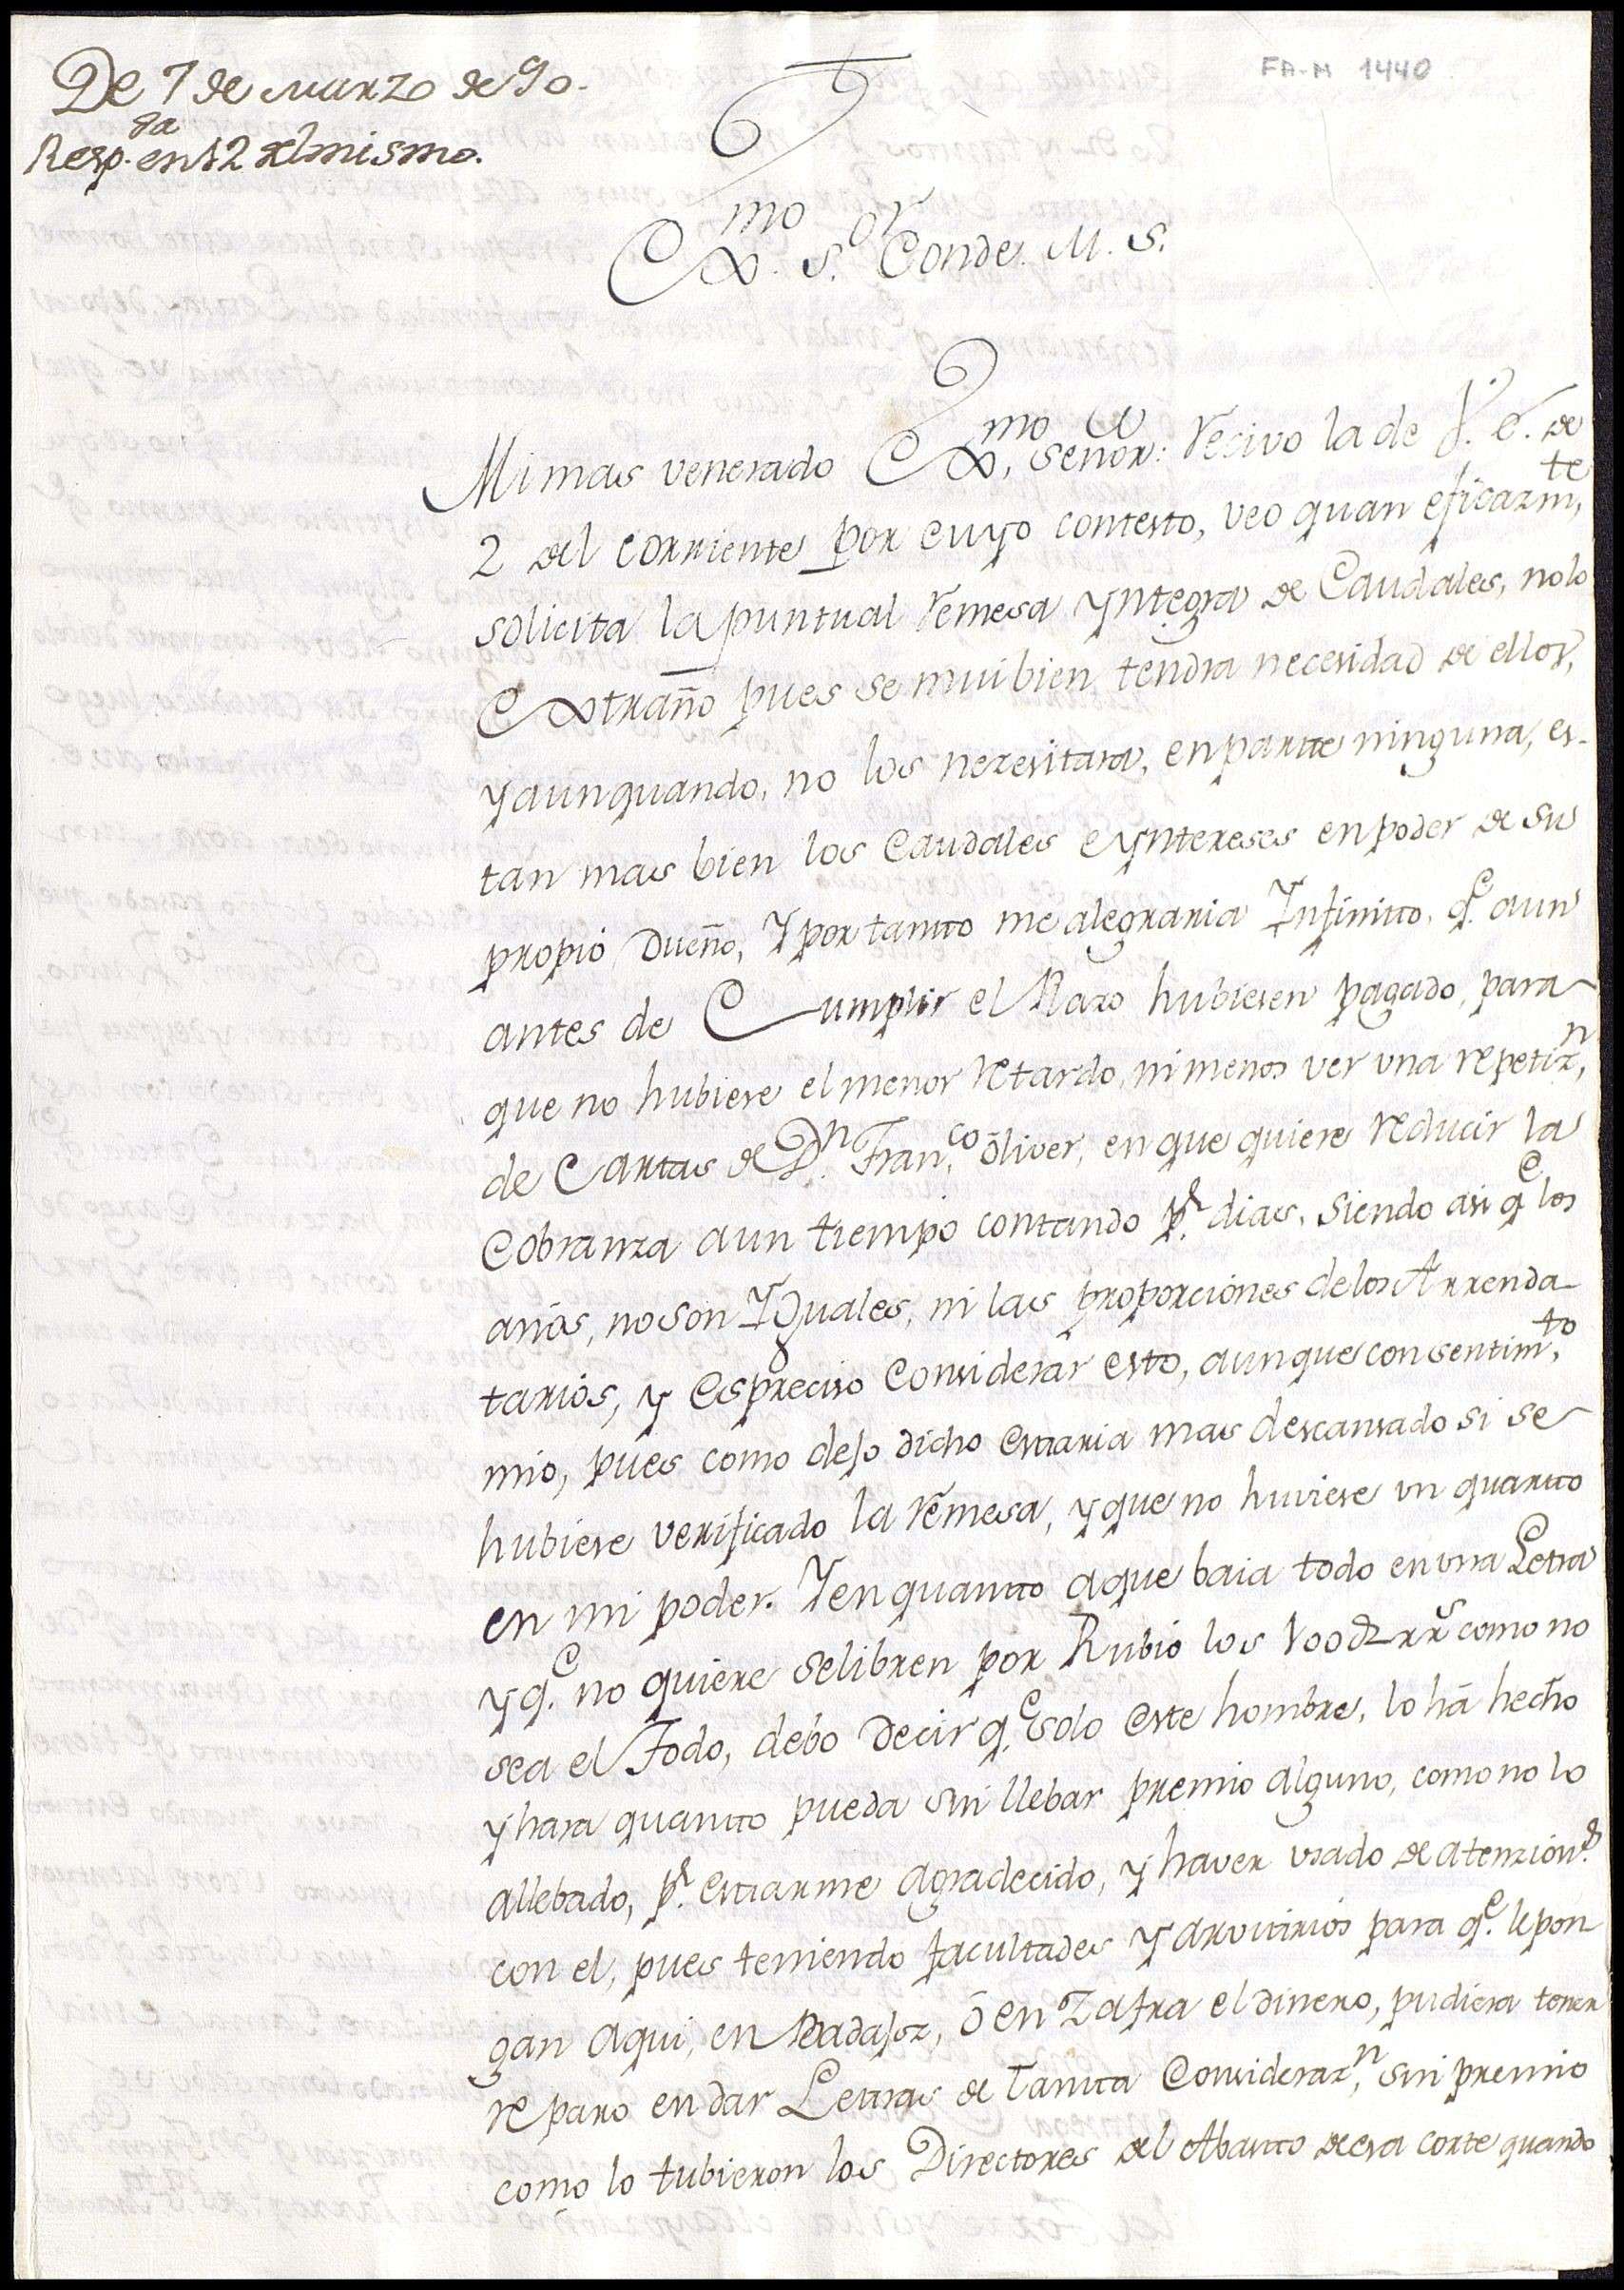 De 7 de Marzo de 90.
Resp.da en 12 del mismo.
FA-M 1440
Exmo. S.or Conde. M. S.
Mi mas venerado Exmo, señor: recivo la de V. E. de
2 del corriente por cuyo contesto, veo quan eficazmte,
solicita la puntual remesa yntegra de Caudales, no lo
Extraño pues se mui bien tendra necesidad de ellos,
y aunquando, no los nezesitara, en parte ninguna, es-
tan mas bien los Caudales e yntereses en poder de su
propio Dueño, y por tanto me alegraria Infinito. q.e aun
antes de Cumplir el Plazo hubiesen pagado, para
que no hubiese el menor retardo, ni menos ver una repetizn,
de Cartas de Dn. Fran.co Oliver, en que quiere reducir la
Cobranza aun tiempo contando p.r dias, siendo asi qe los
años, no son Yguales, ni las proporciones de los Arrenda-
tarios, y es preciso Considerar esto, aunque con sentim.to
mio, pues como dejo dicho estaria mas descansado si se
hubiese verificado la remesa, y que no huviese un quarto
en mi poder. Y en quanto aque baia todo en una Letra
y q.e no quiere se libren por Rubio los como no
sea el Todo, debo Decir q.e solo este hombre, lo há hecho
y hara quanto pueda sin llebar premio alguno, como no lo
allebado, p.r estarme agradecido, y haver usado de atenzion.s
con el, pues teniendo facultades y arvitrios para q.e le pon
gan aqui, en Badajoz, ó en Zafra el dinero, pudiera tener
reparo en dar Letras de tanta Considerazn, sin premio
como lo tubieron los Directores del Abasto de esa corte quando